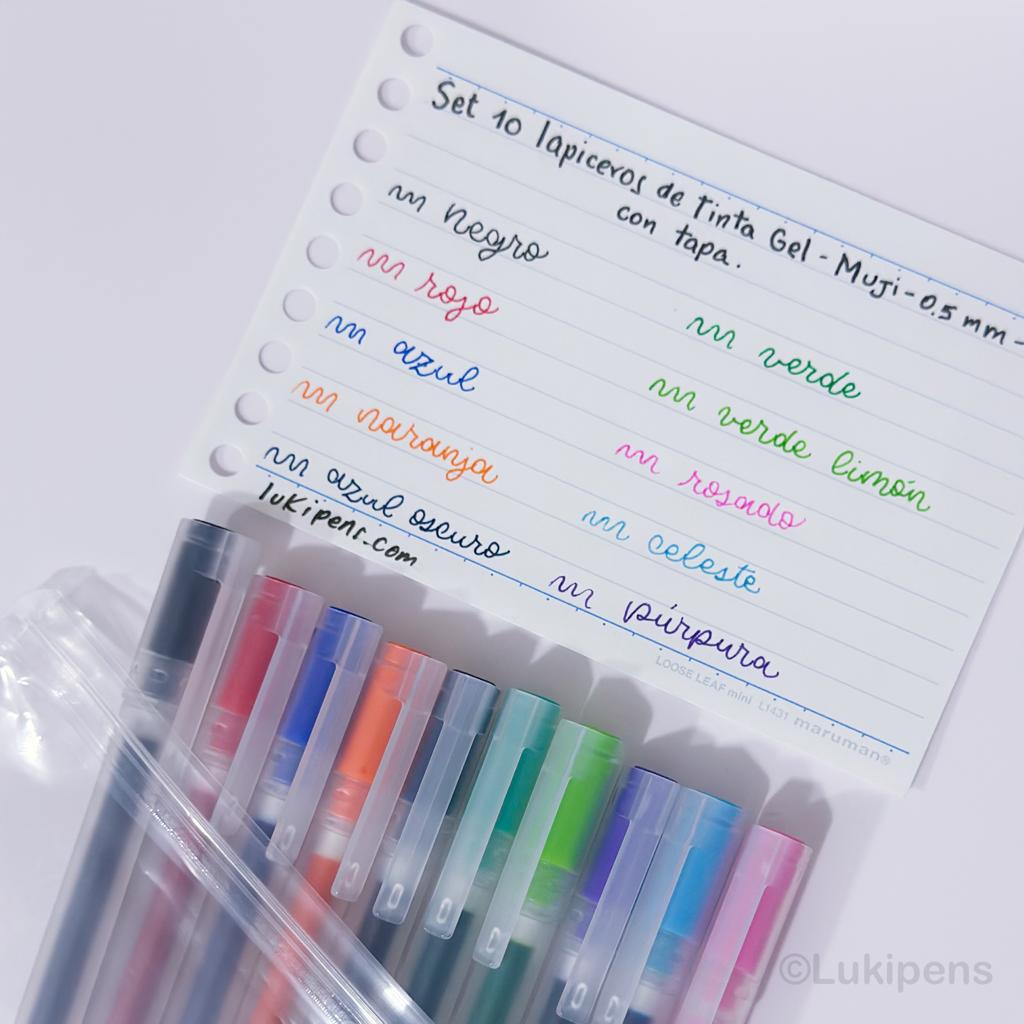 Set 10 lapiceros de Tinta Gel - Muji - 0.5 mm -
con tapa.
negro
rojo
azul
naranja
azul oscuro
verde
verde limón
rosado
celeste
púrpura
lukipens.com
LOOSE LEAF mini L1431 maruman®
©Lukipens